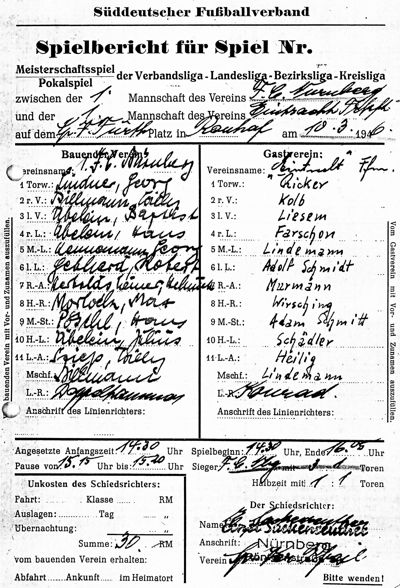 Süddeutscher Fußballverband
Spielbericht für Spiel Nr.
Meisterschaftsspiel
Pokalspiel
der Verbandsliga-Landesliga-Bezirksliga-Kreisliga
zwischen der 1. Mannschaft des Vereins F.C. Nürnberg
und der Mannschaft des Vereins Eintracht
auf dem Fürth Platz in Ronhof am 10.3.1946
Bauender Verein:
Vereinsname: 1. F.C. Nürnberg
1 Torw.: Lindner, Georg
2 r. V.: Billmann, Willy
3 l. V.: Übelein,
4 r. L.: Übelein, Hans
5 M.-L.: Kennemann, Georg
6 l. L.: Gebhard, Robert
7 R.-A.:
8 H-R.: Morlock, Max
9 M.-St.: Pöschl, Hans
10 H-L.: Übelein, Julius
11 L.-A.:
Mschf.: Billmann
L.-R.:
Anschrift des Linienrichters:
Gastverein:
Vereinsname: Eintracht Ffm.
1 Torw.: "Ricker
2 r. V.: Kolb
3 l. V.: Liesem
4 r. L.: Farschon
5 M.-L.: Lindemann
6 l. L.: Adolf Schmidt
7 R.-A.: Murmann
8 H-R.: Wirsching
9 M.-St.: Adam Schmitt
10 H-L.: Schädler
11 L.-A.: Heilig
Mschf.: Lindemann
L.-R.: Konrad
Anschrift des Linienrichters:
bauenden Verein mit Vor- und Zunamen auszufüllen.
Vom Gastverein mit Vor- und Zunamen auszufüllen.
Angesetzte Anfangszeit: 14.30 Uhr, Spielbeginn: 14.30 Uhr, Ende 16.05
Pause von 15.15 Uhr bis: 15.20 Uhr Sieger F.C. Nbg mit 3 : Toren
Halbzeit mit 1 : 1 Toren
Unkosten des Schiedsrichters:
Fahrt: Klasse RM
Auslagen: Tag „
Übernachtung: „
Summe: 30. RM
vom bauenden Verein erhalten:
Abfahrt Ankunft im Heimatort
Der Schiedsrichter:
Name:
Anschrift: Nürnberg
Verein:
Bitte wenden!